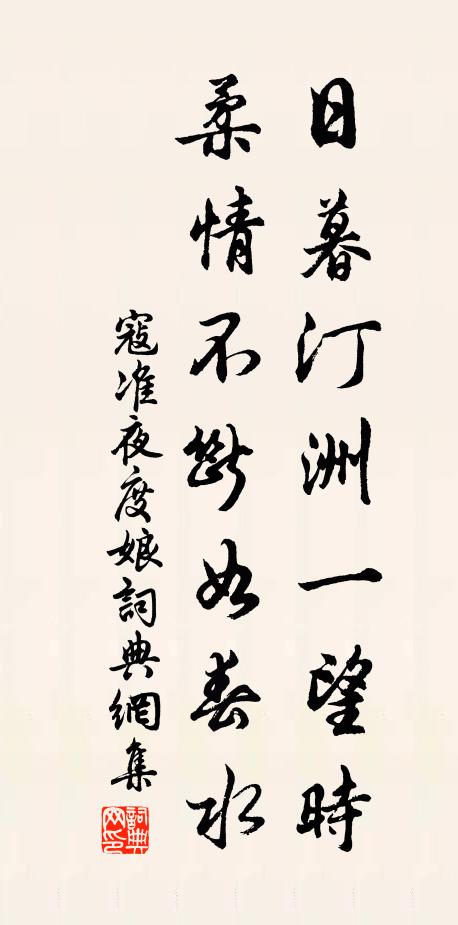 日暮汀洲一望時
柔情不斷如春水
寇准夜度娘詞典網集
詞典網印